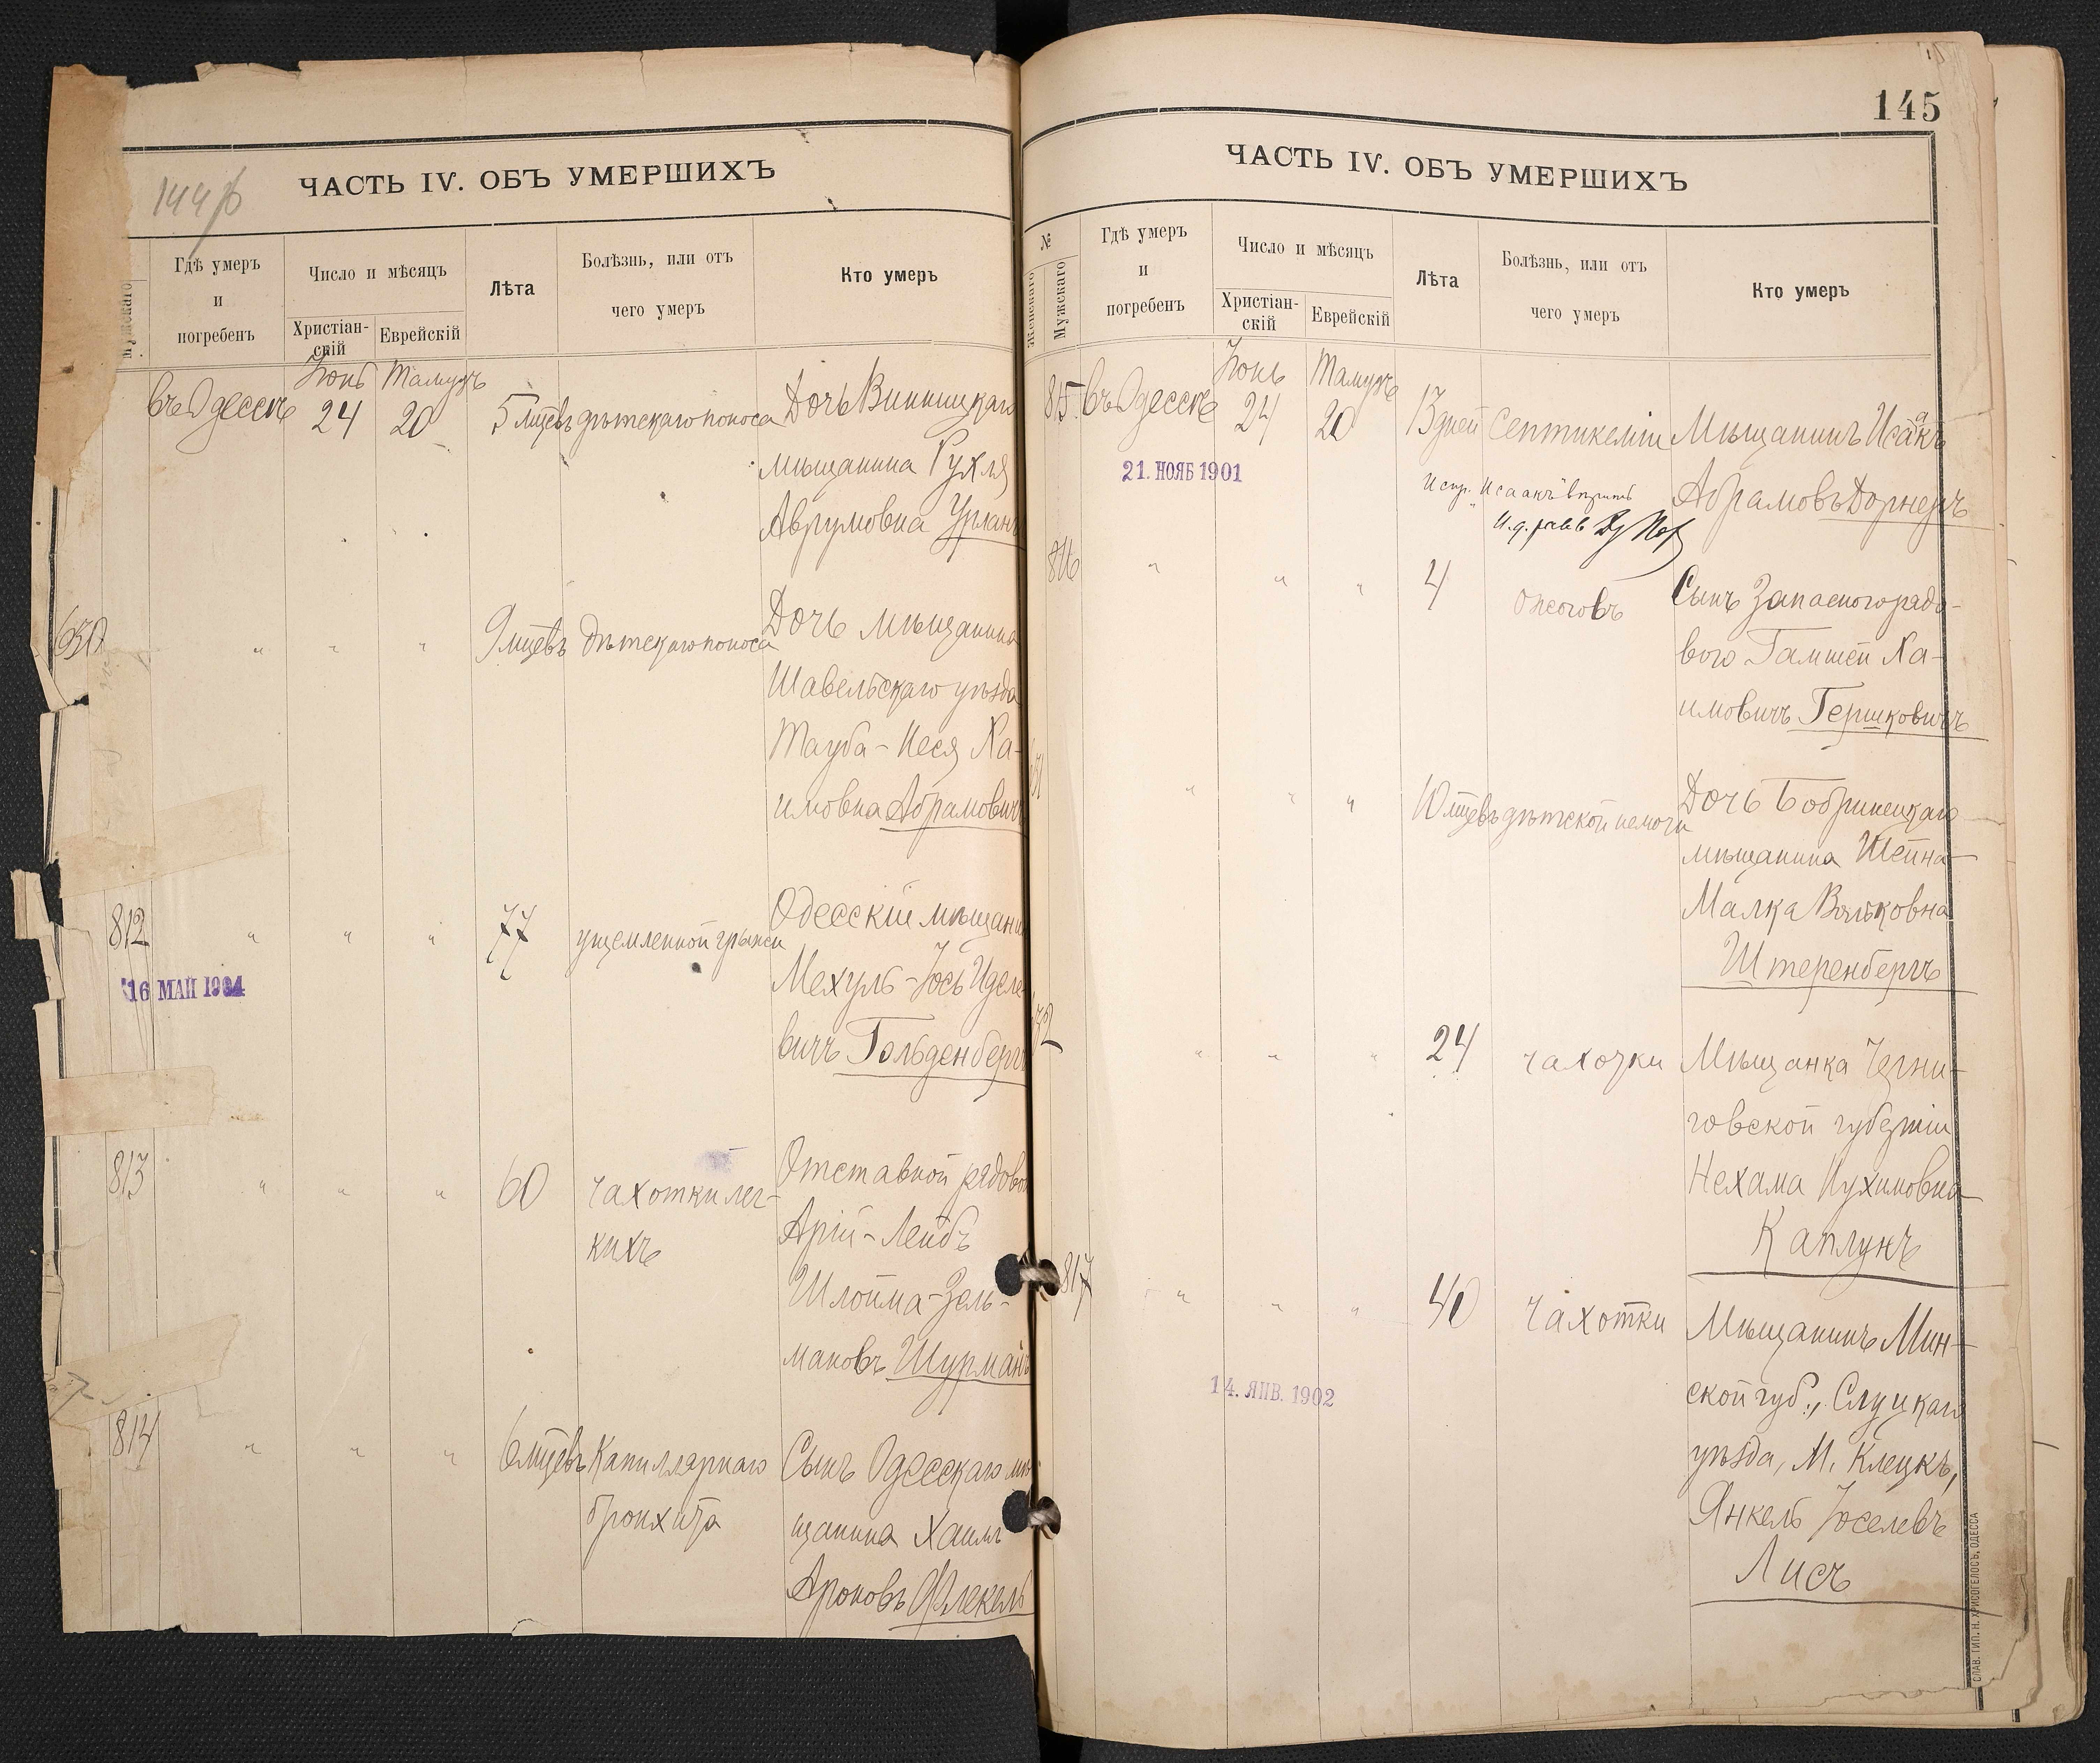 144/б
ЧАСТЬ IV. ОБЪ УМЕРШИХЪ
Мужскаго
Гдѣ умеръ
и
погребенъ
Число и мѣсяцъ
Христіан-
скій
Еврейскій
Лѣта
Болѣзнь, или отъ
чего умеръ
Кто умеръ
въ Одессѣ
Іюнь
24
Тамузъ
20
5 мцевъ
дѣтскаго поноса
Дочь Винницкаго
мѣщанина Рухля
Аврумовна Урланъ
630
" " "
9 мцевъ
дѣтскаго поноса
Дочь мѣщанина
Шавельскаго уѣзда
Тауба-Неся Ха-
имовна Абрамовичъ
812
16 МАЙ 1904
" " "
77
ущемленной грыжи
Одесскій мѣщанинъ
Мехуль-Іось Иделе-
вичъ Гольденбергъ
813
" " "
60
чахотки лег-
кихъ
Отставной рядовой
Арій-Лейбъ
Шлойма-Зель-
мановъ Шурманъ
814
" " "
6 мцевъ
Капиллярнаго
бронхита
Сынъ Одесскаго мѣ-
щанина Хаимъ
Ароновъ Флекель
145
ЧАСТЬ IV. ОБЪ УМЕРШИХЪ
№
Женскаго
Мужскаго
Гдѣ умеръ
и
погребенъ
Число и мѣсяцъ
Христіан-
скій
Еврейскій
Лѣта
Болѣзнь, или отъ
чего умеръ
Кто умеръ
815.
въ Одессѣ
Іюнь
24
Тамузъ
20
13 дней
Септикеміи
Мѣщанинъ Исаакъ
Абрамовъ Дорнеръ
21. НОЯБ 1901
Испр. "Исаакъ" вѣрить
И. д. рав.
816
" " "
4
ожоговъ
Сынъ Запасного рядо-
вого Гамшей Ха-
имовичъ Гершковичъ
" " "
10 мцевъ
дѣтской немочи
Дочь Бобринецкаго
мѣщанина Шейна-
Малка Вольковна
Штеренбергъ
" " "
24
чахотки
Мѣщанка Черни-
говской губерніи
Нехама Нухимовна
Каплунъ
817
" " "
40
чахотки
Мѣщанинъ Мин-
ской губ., Слуцкаго
уѣзда, М. Клецкъ,
Янкель Іоселевъ
Лисъ
14. ЯНВ. 1902
СЛАВ. ТИП. Н. ХРИСОГЕЛОСЪ, ОДЕССА